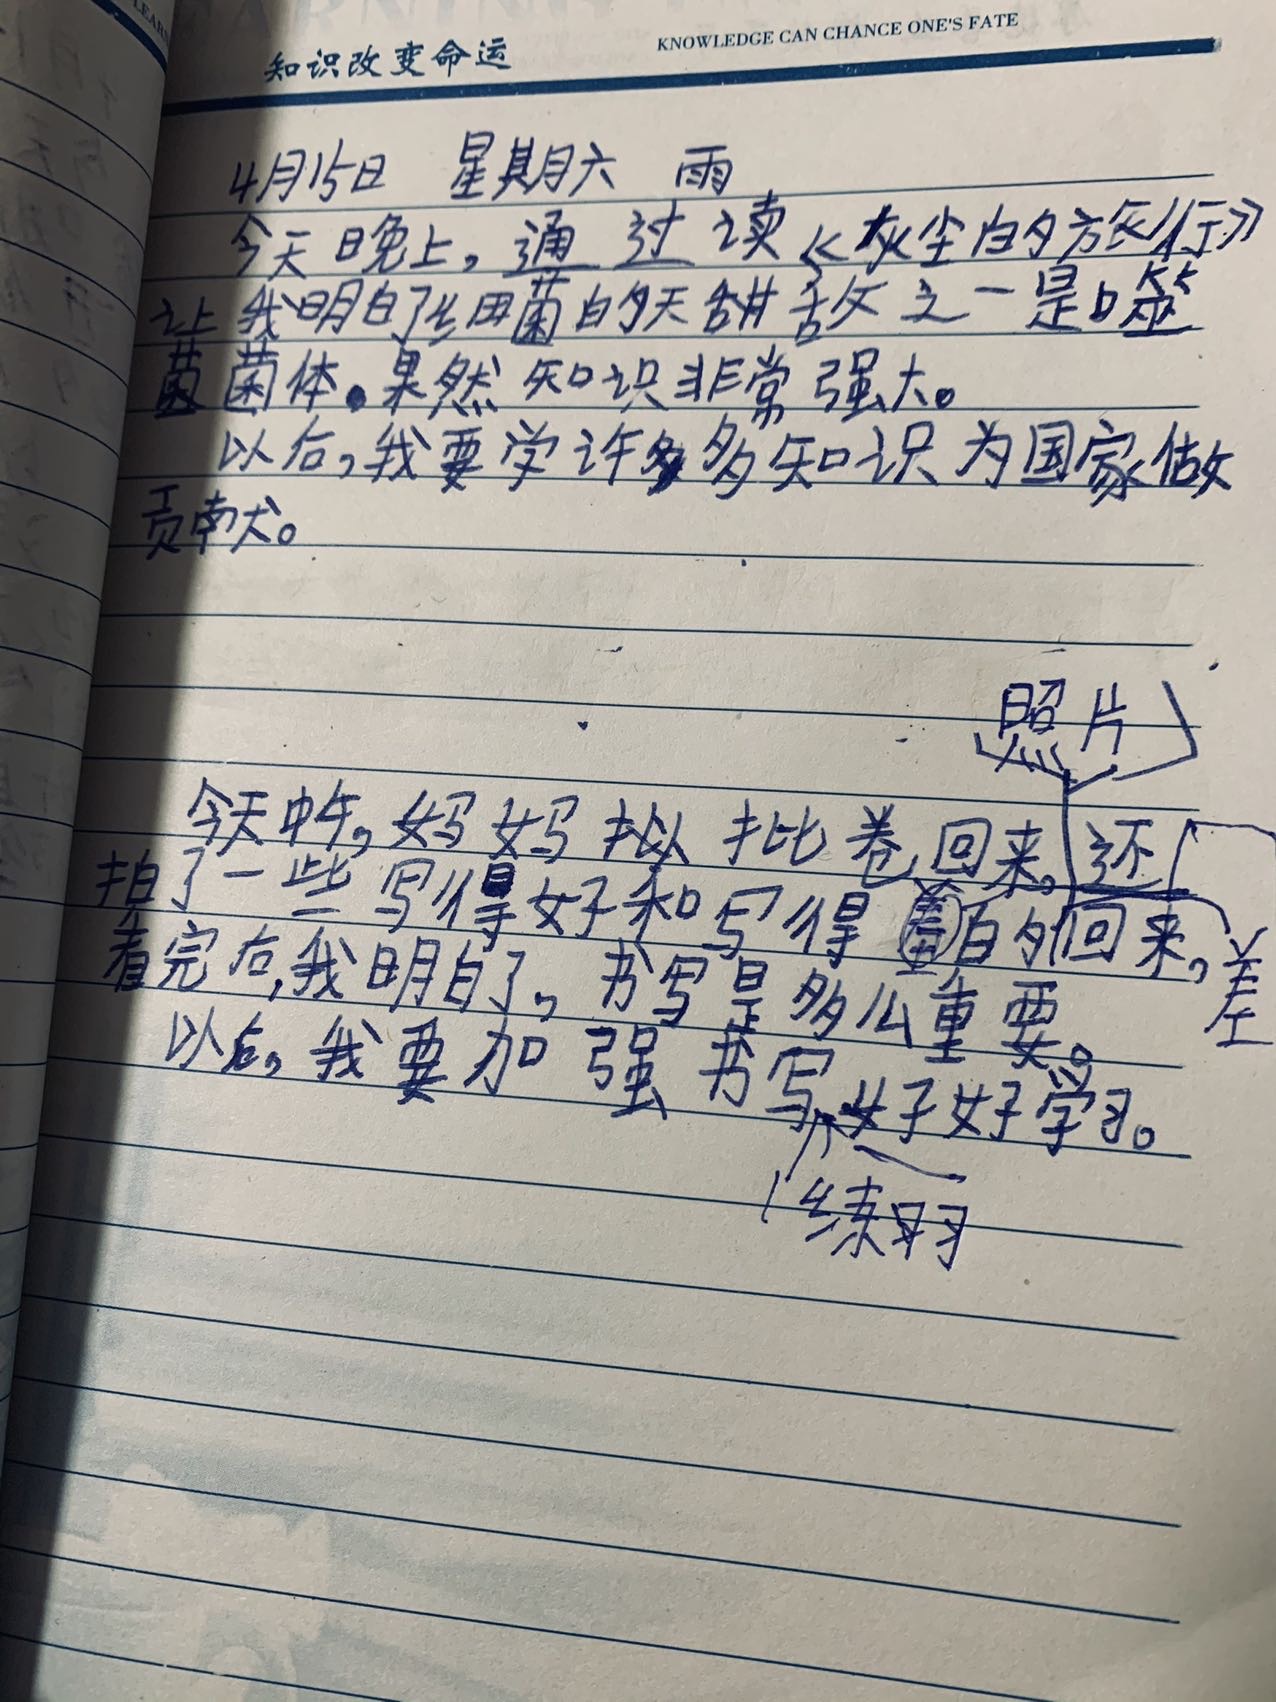 知识改变命运 KNOWLEDGE CAN CHANCE ONE'S FATE
4月15日 星期六 雨
今天晚上，通过读《灰尘的旅行》
让我明白了细菌的天敌之一是噬
菌体。果然知识非常强大。
以后，我要学许多多知识为国家做
贡献。
照片
今天中午，妈妈批卷回来，还
拍了一些写得好和写得差的回来，
差
看完后，我明白了，书写是多么重要。
以后，我要加强书写，好好学习。
练习